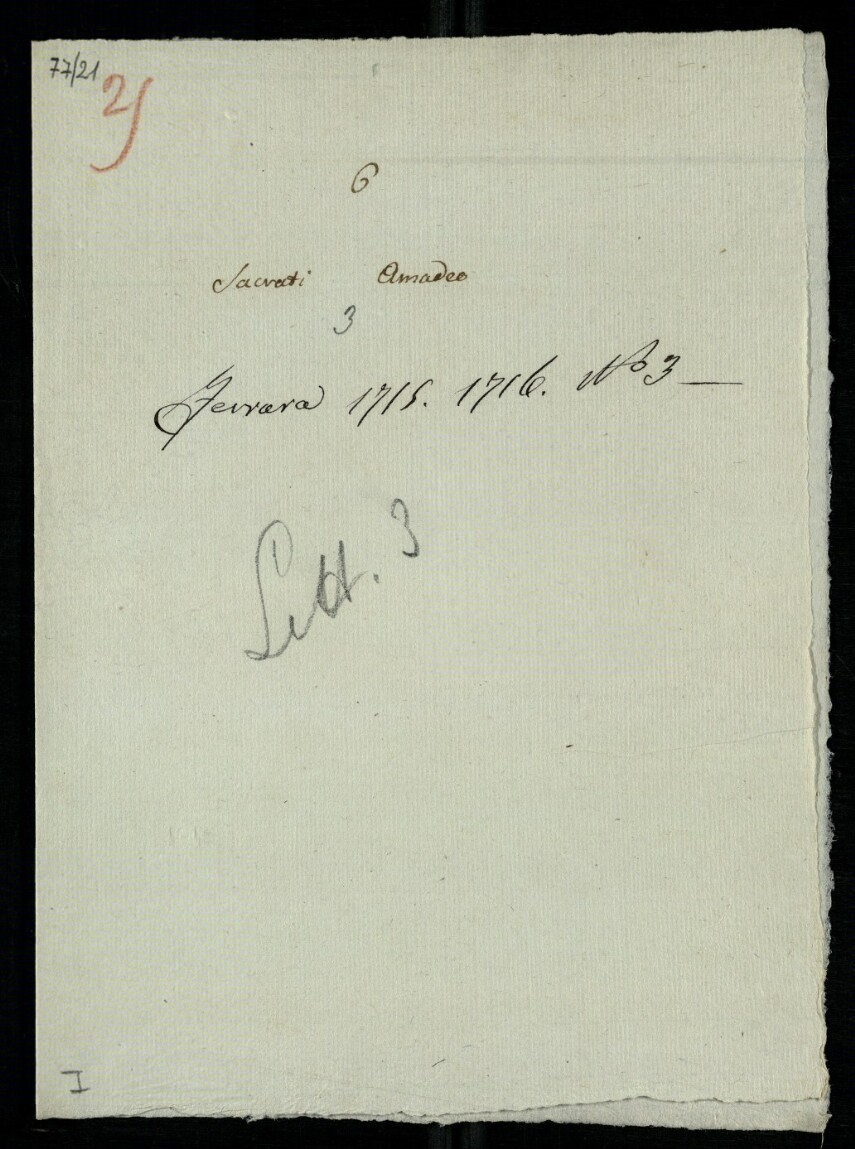 77/21
21
6
Sacrati Amadeo
3
Ferrara 1715. 1716. No 3 —
Lett. 3
I